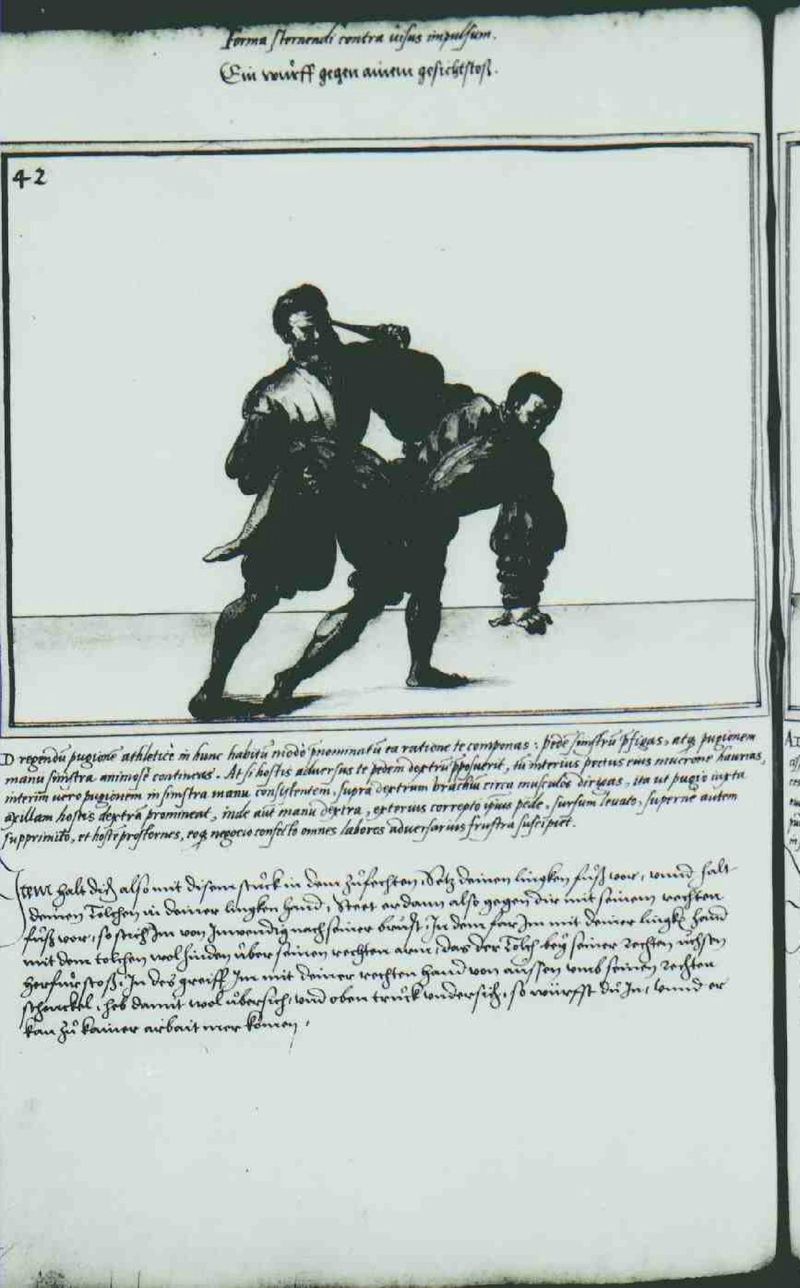 Forma sternendi contra uisus impulsum.
Ein wurff gegen ainem gesichtstosz.
42
D regendū pugionē athleticè in hunc habitū modò pnominatū ea ratione te componas: pede sinistrū pfigas, atq, pugionem
manu sinistra animosè contineas. At si hostis aduersus te pedem dextrū pposuerit, tu interius pectus eius mucrone haurias,
interim uero pugionem in sinistra manu consistentem, supra dextrum brachiū circa musculos dirigas, ita ut pugio iuxta
axillam hostis dextrā promineat, inde aūt manu dextra, exterius correpto ipsius pede, sursum leuato, superne autem
supprimito, et hostē prosternes, eoq, negocio confecto omnes labores aduersarius frustra suscipiet.
Item halt dich also mit disem stuck in dem zufechten, Setz deinen lingken fuß vor, vnnd halt
deinen Tolchen in deiner lingken hand, Steet er dann also gegen dir mit seinem rechten
fuß vor, so stich Im von Inwendig nach seiner brust, In dem far Im mit deiner lingkē hand
mit dem tolchen wol hinden über seinen rechten arm, das der Tolch bey seiner rechten üchsen
herfur stoß, In des greiff Im mit deiner rechten hand von aussen vmb seinen rechten
schenckel, heb damit wol übersich, vnd oben truck vndersich, so würffst du In, vnnd er
kan zu kainer arbait mer komen,